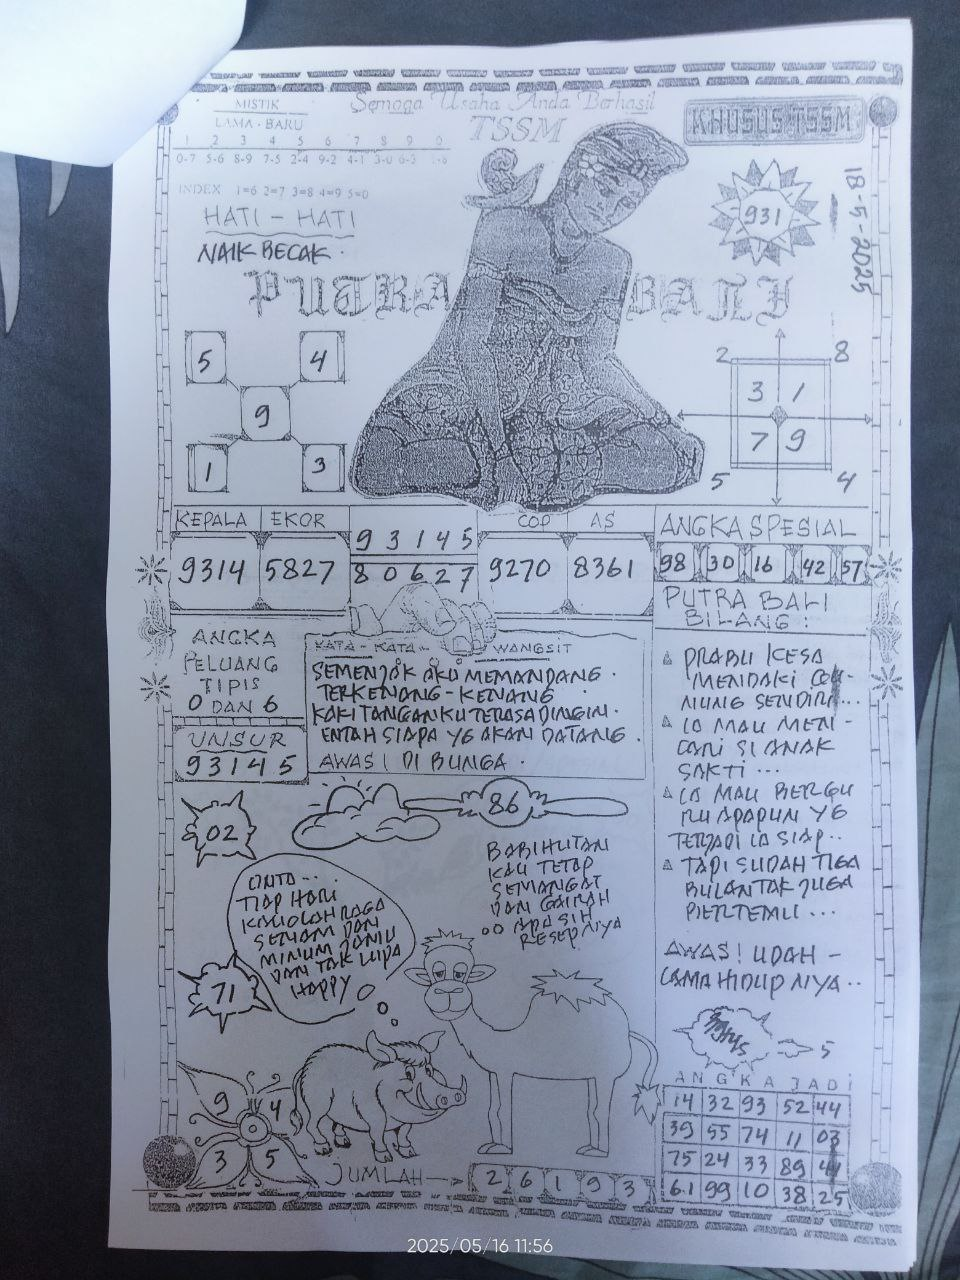 MISTIK
LAMA - BARU
1 2 3 4 5 6 7 8 9 0
0-7 5-6 8-9 7-5 2-4 9-2 4-1 3-0 6-3 1-8
INDEX 1=6 2=7 3=8 4=9 5=0
Semoga Usaha Anda Berhasil
TSSM
KHUSUS TSSM
HATI - HATI
NAIK BECAK.
931
18-5-2025
PUTRA BALI
5 4
9
1 3
2 8
3 1
7 9
5 4
KEPALA EKOR
9314 5827
9 3 1 4 5
8 0 6 2 7
COP AS
9270 8361
ANGKA SPESIAL
98 30 16 42 57
ANGKA
PELUANG
TIPIS
0 DAN 6
UNSUR
93145
KATA - KATA WANGSIT
SEMENJAK AKU MEMANDANG.
TERKENANG - KENANG
KAKI TANGANKU TERASA DINGIN.
ENTAH SIAPA YG AKAN DATANG.
AWAS! DI BUNGA.
PUTRA BALI
BILANG:
PRABU KESA
MENDAKI GU-
NUNG SENDIRI...
IA MAU MEN-
CARI SI ANAK
SAKTI...
IA MAU BERGU
RU APAPUN YG
TERJADI IA SIAP..
TAPI SUDAH TIGA
BULAN TAK JUGA
BERTEMU...
AWAS! UDAH -
LAMA HIDUP NYA..
02
86
71
CINTA...
TIAP HARI
KAU OLAH RAGA
SENAM DAN
MINUM JAMU
DAN TAK LUPA
HAPPY
BABI HUTAN
KAU TETAP
SEMANGAT
DAN GAIRAH
APA SIH
RESEPNYA
5
9 4
3 5
JUMLAH
2 6 1 9 3
ANGKA JADI
14 32 93 52 44
39 55 74 11 03
75 24 33 89 41
61 99 10 38 25
2025/05/16 11:56